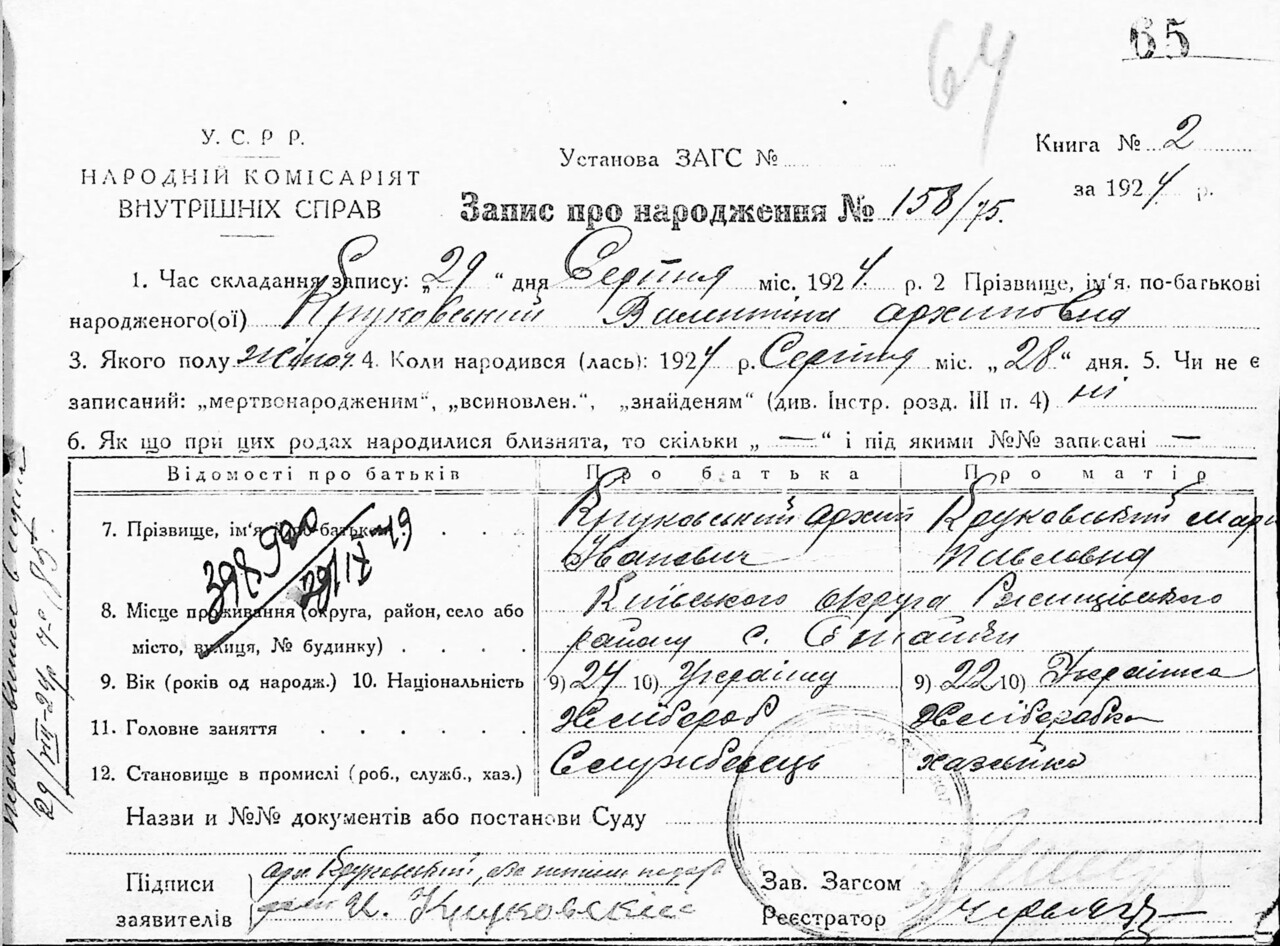 65
64
У. С. Р Р.
НАРОДНІЙ КОМІСАРІЯТ
ВНУТРІШНІХ СПРАВ
Установа ЗАГС №
Книга № 2
за 1924 р.
Запис про народження № 158/75.
1. Час складання запису: „29“ дня Серпня міс. 1924. р. 2 Прізвище, ім'я. по-батькові
народженого(ої) Круковський Валентіна Архиповна
3. Якого полу жіноч. 4. Коли народився (лась): 1924 р. Серпня міс. „28“ дня. 5. Чи не є
записаний: „мертвонародженим“, „всиновлен.“, „знайденям“ (див. Інстр. розд. III п. 4) ні
6. Як що при цих родах народилися близнята, то скільки „ — “ і під якими №№ записані —
Відомості про батьків Про батька Про матір
7. Прізвище, ім'я, по-батькові . . . Круковський Архип Круковський Мари
Іванович Павловна
398900
29/IX 49
8. Місце проживання (округа, район, село або Київського округа Ржищівського
місто, вулиця, № будинку) . . . . району с.
9. Вік (років од народж.) 10. Національність 9) 24 10) Українц 9) 22 10) Українка
11. Головне заняття . . . . . . Хлібороб Хліборобка
12. Становище в промислі (роб., служб., хаз.) хазяйка
Назви и №№ документів або постанови Суду
Підписи
заявителів
Круковський, За
И. Круковский
Зав. Загсом
Реєстратор
29/VIII-24р